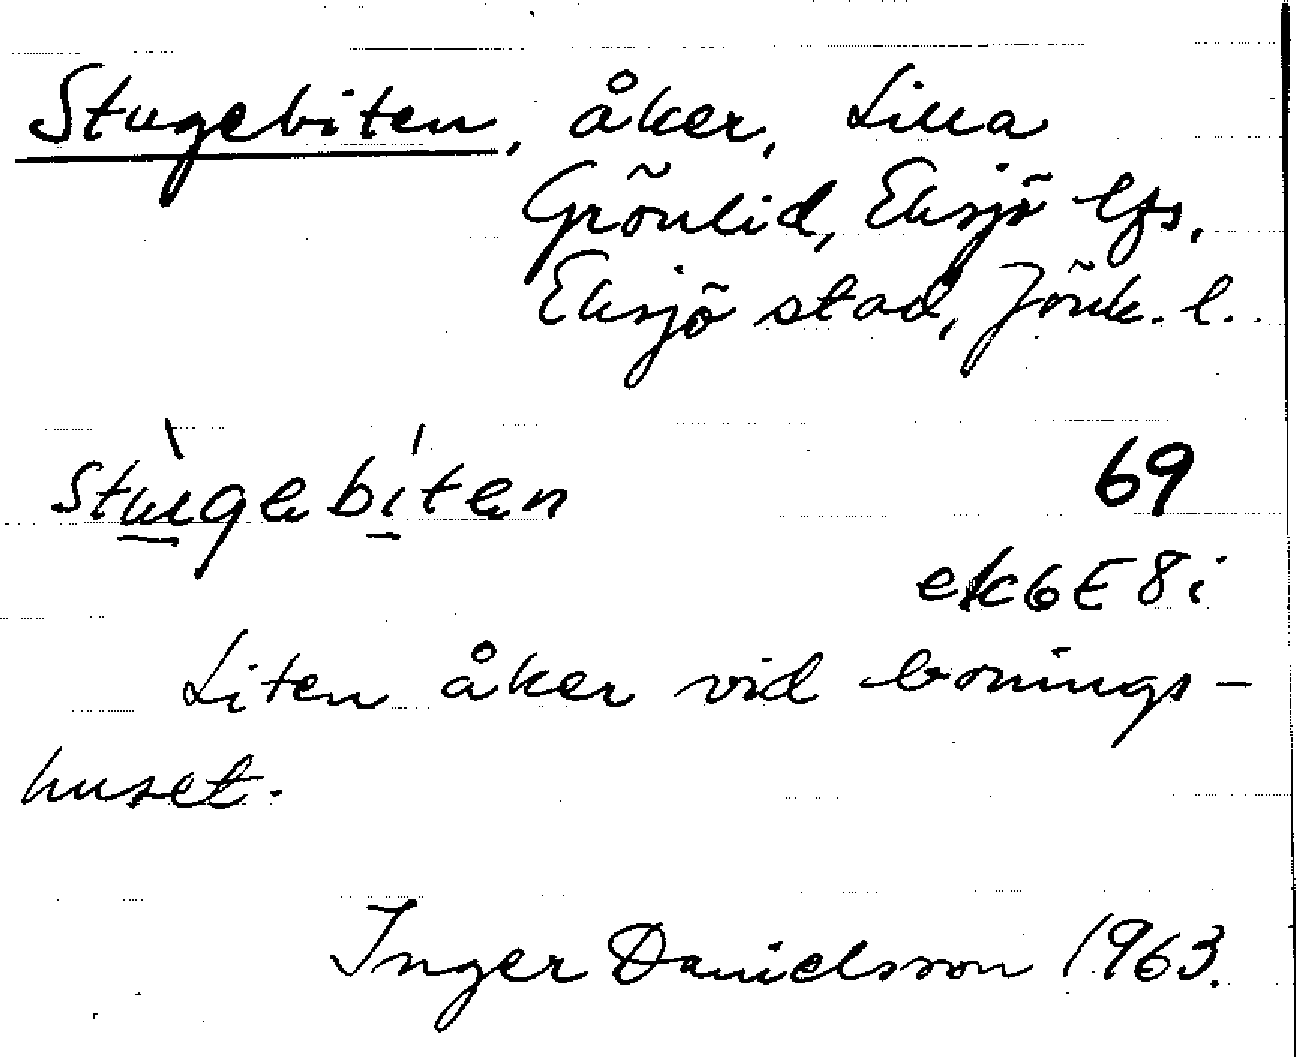 Stugebiten, åker, Lilla
Grönlid, Eksjö lfs.
Eksjö stad, Jönk. l.
69
ek 6E8i
Liten åker vid bonings-
huset.
Inger Danielsson 1963.